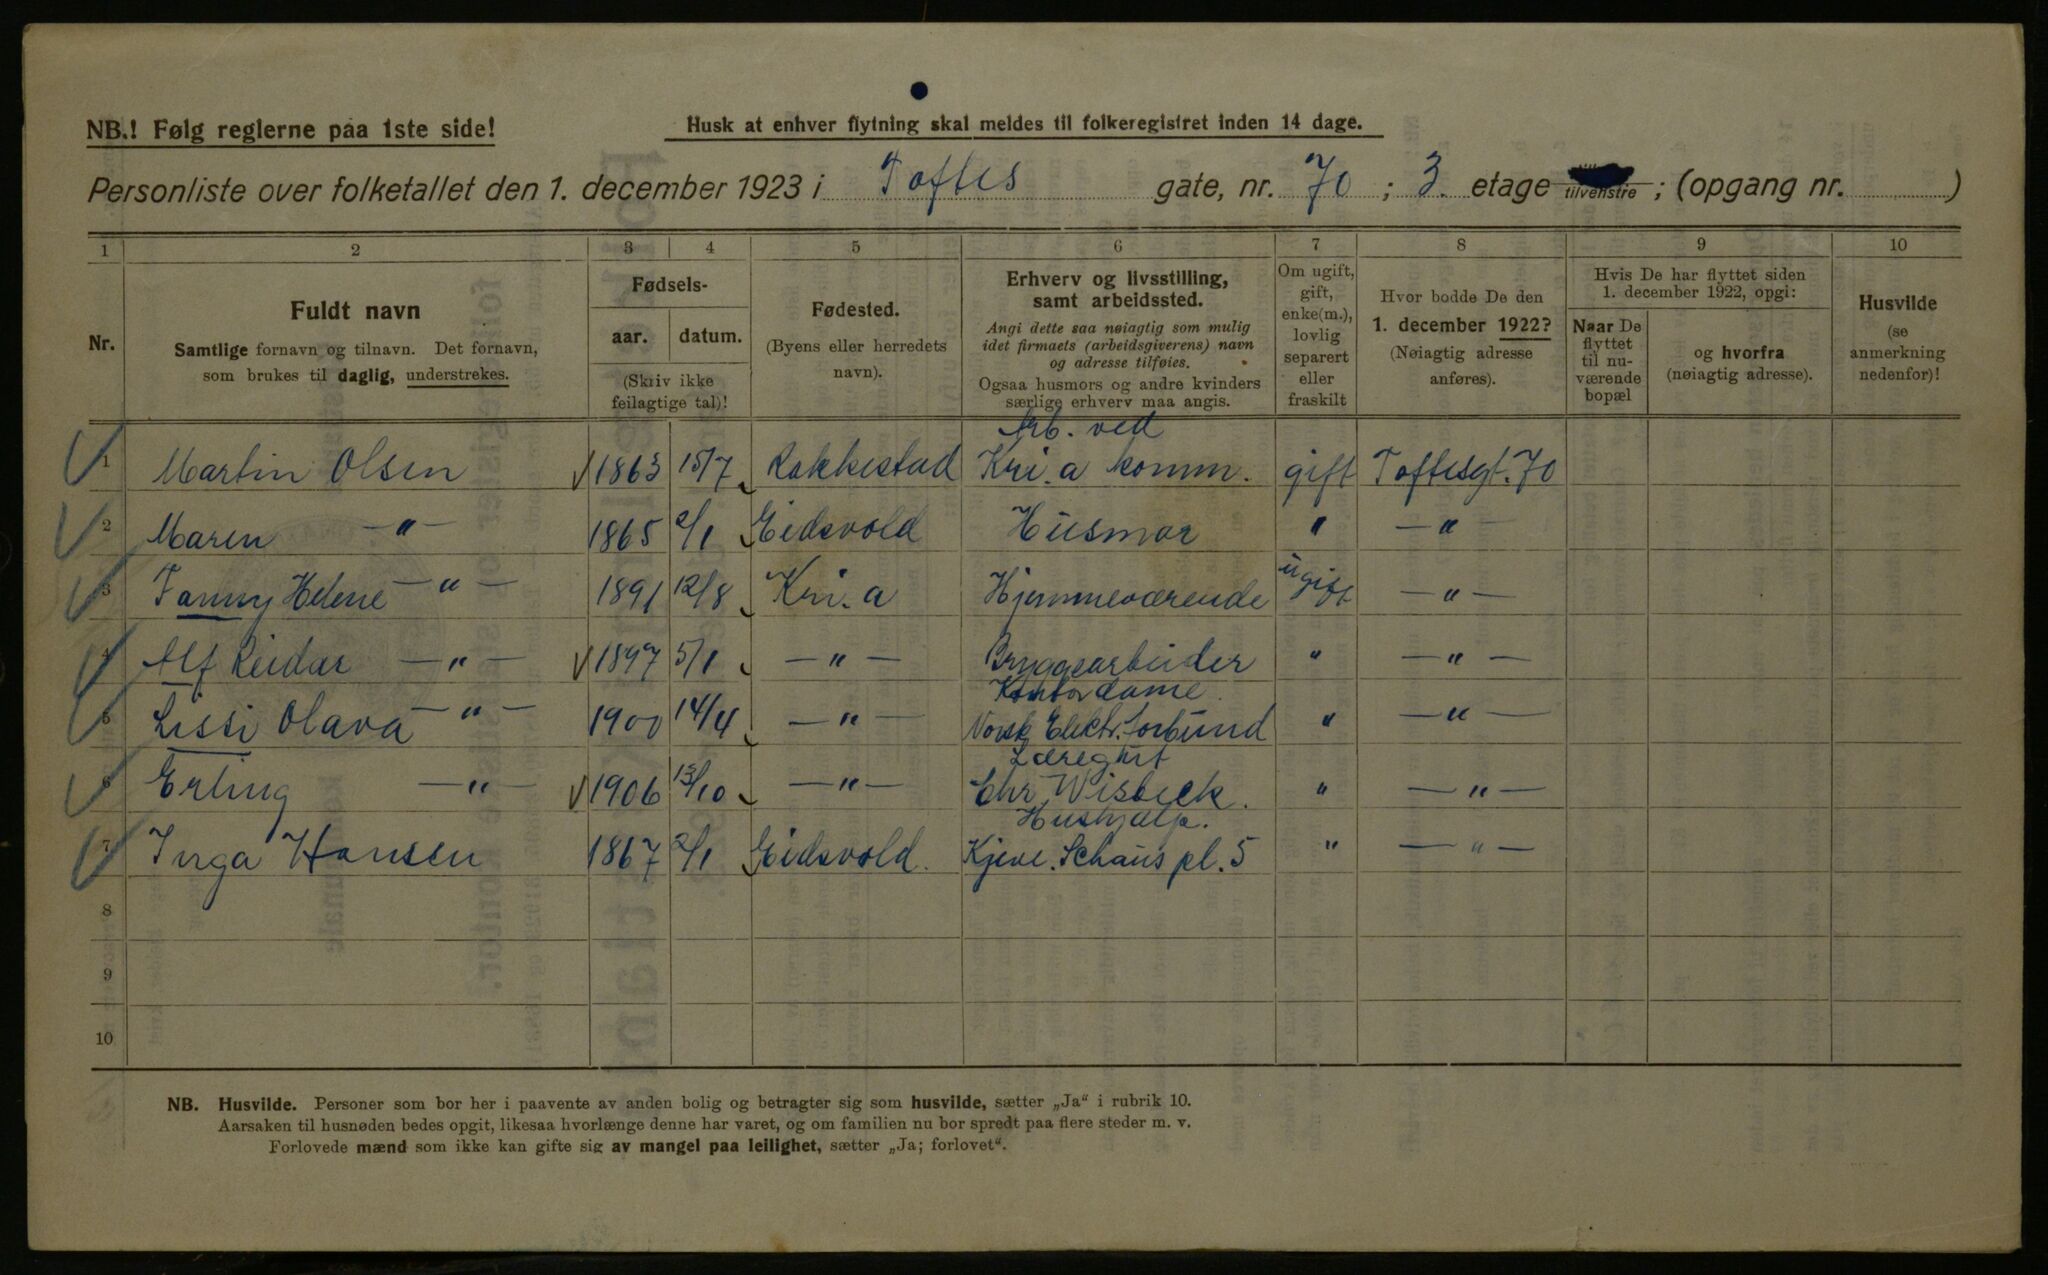 NB.! Følg reglerne paa 1ste side!
Husk at enhver flytning skal meldes til folkeregistret inden 14 dage.
Personliste over folketallet den 1. december 1923 i Toftes gate, nr. 70 ; 3. etage tilvenstre ; (opgang nr. )
1 2 3 4 5 6 7 8 9 10
Nr.
Fuldt navn
Samtlige fornavn og tilnavn. Det fornavn,
som brukes til daglig, understrekes.
Fødsels-
aar. datum.
(Skriv ikke
feilagtige tal)!
Fødested.
(Byens eller herredets
navn).
Erhverv og livsstilling,
samt arbeidssted.
Angi dette saa nøiagtig som mulig
idet firmaets (arbeidsgiverens) navn
og adresse tilføies.
Ogsaa husmors og andre kvinders
særlige erhverv maa angis.
Om ugift,
gift,
enke(m.),
lovlig
separert
eller
fraskilt
Hvor bodde De den
1. december 1922?
(Nøiagtig adresse
anføres).
Hvis De har flyttet siden
1. december 1922, opgi:
Naar De
flyttet
til nu-
værende
bopæl
og hvorfra
(nøiagtig adresse).
Husvilde
(se
anmerkning
nedenfor)!
Arb. ved
1 Martin Olsen 1863 15/7 Rakkestad Kri.a komm. gift Toftesgt. 70
2 Maren — " — 1865 2/1 Eidsvold Husmor " — " —
3 Fanny Helene — " — 1891 12/8 Kri.a Hjemmeværende ugift — " —
4 Alf Reidar — " — 1897 5/1 — " — Bryggearbeider " — " —
Kontordame
5 Lissi Olava — " — 1900 14/4 — " — Norsk Elektr. Forbund " — " —
Læregut
6 Erling — " — 1906 15/10 — " — Chr. Wisbeck. " — " —
Hushjælp.
7 Inga Hansen 1867 2/1 Eidsvold. Kjeve. Schaus pl. 5 " — " —
8
9
10
NB. Husvilde. Personer som bor her i paavente av anden bolig og betragter sig som husvilde, sætter „Ja“ i rubrik 10.
Aarsaken til husnøden bedes opgit, likesaa hvorlænge denne har varet, og om familien nu bor spredt paa flere steder m. v.
Forlovede mænd som ikke kan gifte sig av mangel paa leilighet, sætter „Ja; forlovet“.